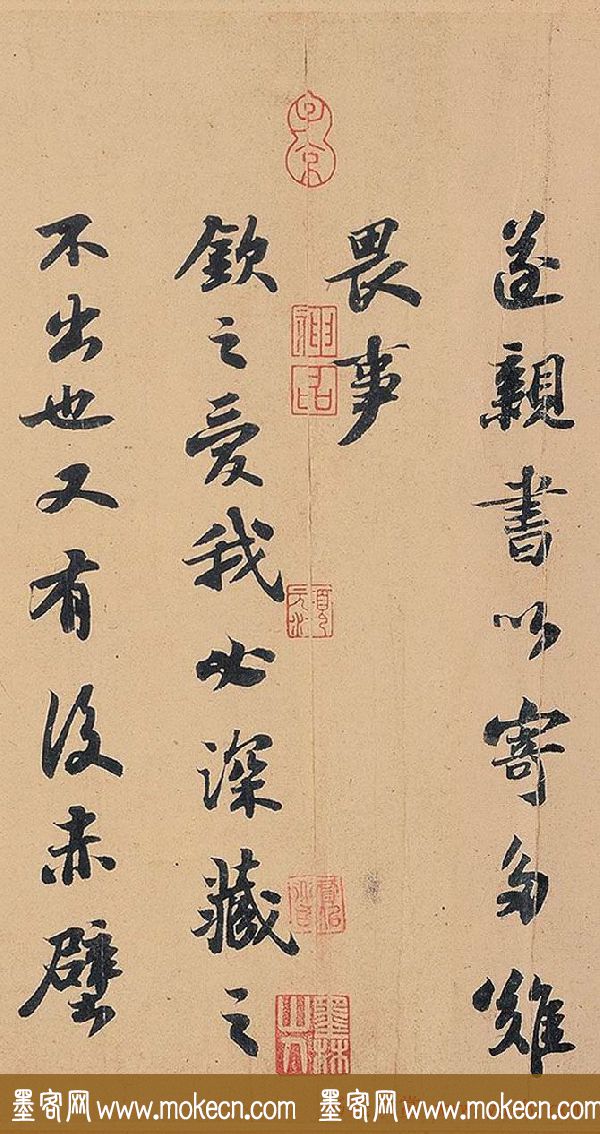 遂親書以寄多難
畏事
欽之愛我必深藏之
不出也又有後赤壁
子京
神品
墨林山人
墨客网 www.mokecn.com 墨客网 www.mokecn.com